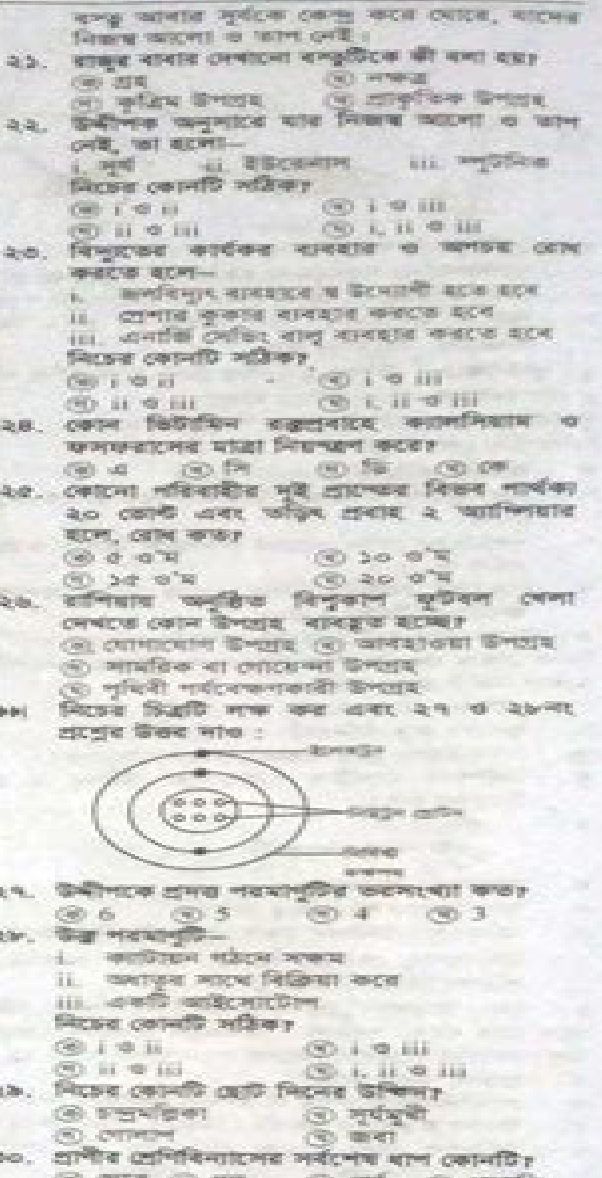 বস্তু আবার সূর্যকে কেন্দ্র করে ঘোরে, যাদের
নিজস্ব আলো ও তাপ নেই।
২১. রাজুর বাবার দেখানো বস্তুটিকে কী বলা হয়?
ক গ্রহ খ নক্ষত্র
গ কৃত্রিম উপগ্রহ ঘ প্রাকৃতিক উপগ্রহ
২২. উদ্দীপক অনুসারে যার নিজস্ব আলো ও তাপ
নেই, তা হলো—
i. সূর্য ii. ইউরেনাস iii. স্পুটনিক
নিচের কোনটি সঠিক?
ক i ও ii খ i ও iii
গ ii ও iii ঘ i, ii ও iii
২৩. বিদ্যুতের কার্যকর ব্যবহার ও অপচয় রোধ
করতে হলে—
i. জলবিদ্যুৎ ব্যবহারে উদ্যোগী হতে হবে
ii. প্রেশার কুকার ব্যবহার করতে হবে
iii. এনার্জি সেভিং বাল্ব ব্যবহার করতে হবে
নিচের কোনটি সঠিক?
ক i ও ii খ i ও iii
গ ii ও iii ঘ i, ii ও iii
২৪. কোন ভিটামিন রক্তপ্রবাহে ক্যালসিয়াম ও
ফসফরাসের মাত্রা নিয়ন্ত্রণ করে?
ক এ খ সি গ ডি ঘ কে
২৫. কোনো পরিবাহীর দুই প্রান্তের বিভব পার্থক্য
২০ ভোল্ট এবং তড়িৎ প্রবাহ ২ অ্যাম্পিয়ার
হলে, রোধ কত?
ক ৫ ও'ম খ ১০ ও'ম
গ ১৫ ও'ম ঘ ২০ ও'ম
২৬. রাশিয়ায় অনুষ্ঠিত বিশ্বকাপ ফুটবল খেলা
দেখতে কোন উপগ্রহ ব্যবহৃত হচ্ছে?
ক যোগাযোগ উপগ্রহ খ আবহাওয়া উপগ্রহ
গ সামরিক বা গোয়েন্দা উপগ্রহ
ঘ পৃথিবী পর্যবেক্ষণকারী উপগ্রহ
নিচের চিত্রটি লক্ষ কর এবং ২৭ ও ২৮নং
প্রশ্নের উত্তর দাও :
ইলেকট্রন
নিউট্রন প্রোটন
কক্ষপথ
২৭. উদ্দীপকে প্রদত্ত পরমাণুটির ভরসংখ্যা কত?
ক 6 খ 5 গ 4 ঘ 3
২৮. উক্ত পরমাণুটি—
i. ক্যাটায়ন গঠনে সক্ষম
ii. অধাতুর সাথে বিক্রিয়া করে
iii. একটি আইসোটোপ
নিচের কোনটি সঠিক?
ক i ও ii খ i ও iii
গ ii ও iii ঘ i, ii ও iii
২৯. নিচের কোনটি ছোট দিনের উদ্ভিদ?
ক চন্দ্রমল্লিকা খ সূর্যমুখী
গ গোলাপ ঘ জবা
৩০. প্রাণীর শ্রেণিবিন্যাসের সর্বশেষ ধাপ কোনটি?